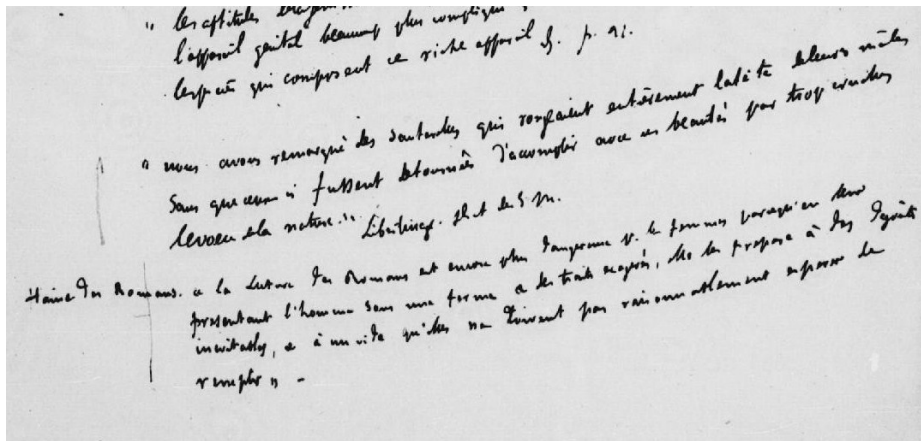 " les aptitudes
l'appareil génital beaucoup plus compliqué
qui composent ce riche appareil p. 91.
" nous avons remarqué des sauterelles qui rongeaient entièrement la tête de leurs mâles
sans que ceux-ci fussent détournés d'accomplir avec ces beautés par trop cruelles
le voeu de la nature. "
Haine des Romans. « la lecture des Romans est encore plus dangereuse p. les femmes parce qu'en leur
présentant l'homme sous une forme & des traits exagérés, elle les prépare à des dégoûts
inévitables, & à un vide qu'elles ne doivent pas raisonnablement espérer de
remplir » –